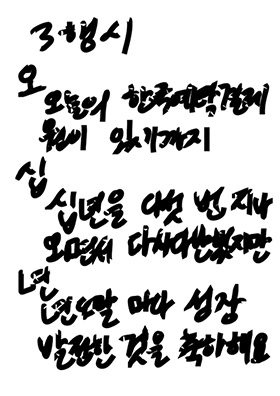 3행시
오
오늘의 한국예탁결제
원이 있기까지
십
십년을 다섯 번 지나
오면서 다사다난했지만
년
년도말 마다 성장
발전한 것을 축하해요